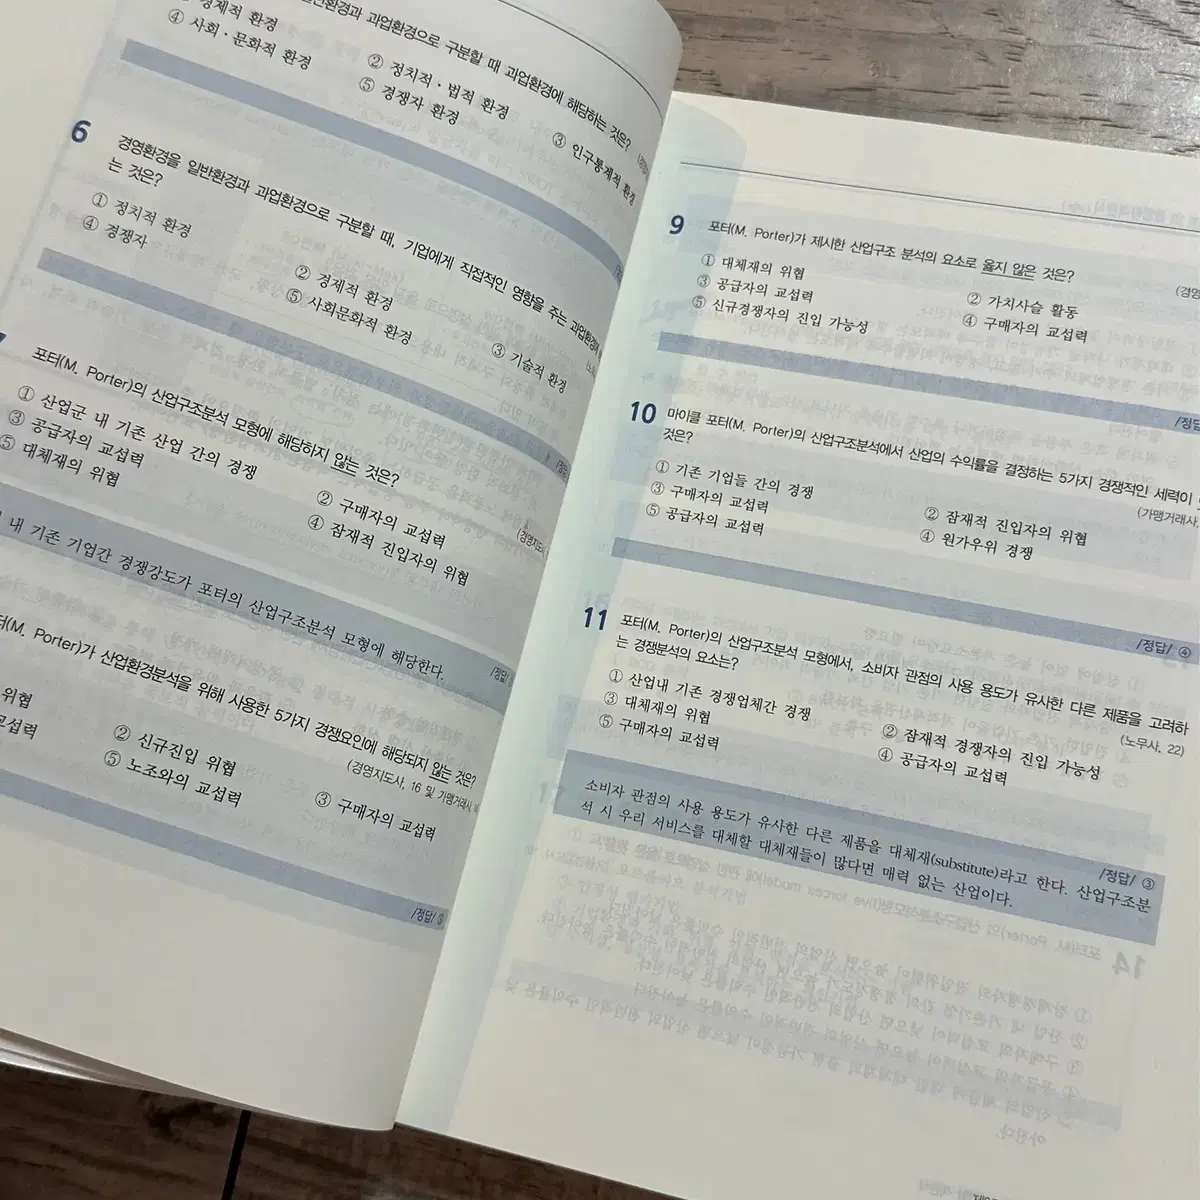 경제적 환경
일반환경과 과업환경으로 구분할 때 과업환경에 해당하는 것은?
② 정치적·법적 환경
③ 인구통계적 환경
④ 사회·문화적 환경
⑤ 경쟁자 환경
6 경영환경을 일반환경과 과업환경으로 구분할 때, 기업에게 직접적인 영향을 주는 과업환경에
는 것은?
① 정치적 환경
② 경제적 환경
③ 기술적 환경
④ 경쟁자
⑤ 사회문화적 환경
포터(M. Porter)의 산업구조분석 모형에 해당하지 않는 것은?
(경영지도사
① 산업군 내 기존 산업 간의 경쟁
② 구매자의 교섭력
③ 공급자의 교섭력
④ 잠재적 진입자의 위협
⑤ 대체재의 위협
내 기존 기업간 경쟁강도가 포터의 산업구조분석 모형에 해당한다.
/정답/
(M. Porter)가 산업환경분석을 위해 사용한 5가지 경쟁요인에 해당되지 않는 것은?
(경영지도사, 16 및 가맹거래사
위협
② 신규진입 위협
③ 구매자의 교섭력
교섭력
⑤ 노조와의 교섭력
/정답/ ⑤
9 포터(M. Porter)가 제시한 산업구조 분석의 요소로 옳지 않은 것은?
(경영
① 대체재의 위협
② 가치사슬 활동
③ 공급자의 교섭력
④ 구매자의 교섭력
⑤ 신규경쟁자의 진입 가능성
/정답
10 마이클 포터(M. Porter)의 산업구조분석에서 산업의 수익률을 결정하는 5가지 경쟁적인 세력이
것은?
(가맹거래사,
① 기존 기업들 간의 경쟁
② 잠재적 진입자의 위협
③ 구매자의 교섭력
④ 원가우위 경쟁
⑤ 공급자의 교섭력
/정답/ ④
11 포터(M. Porter)의 산업구조분석 모형에서, 소비자 관점의 사용 용도가 유사한 다른 제품을 고려하
는 경쟁분석의 요소는?
(노무사, 22)
① 산업내 기존 경쟁업체간 경쟁
② 잠재적 경쟁자의 진입 가능성
③ 대체재의 위협
④ 공급자의 교섭력
⑤ 구매자의 교섭력
/정답/ ③
소비자 관점의 사용 용도가 유사한 다른 제품을 대체재(substitute)라고 한다. 산업구조분
석 시 우리 서비스를 대체할 대체재들이 많다면 매력 없는 산업이다.